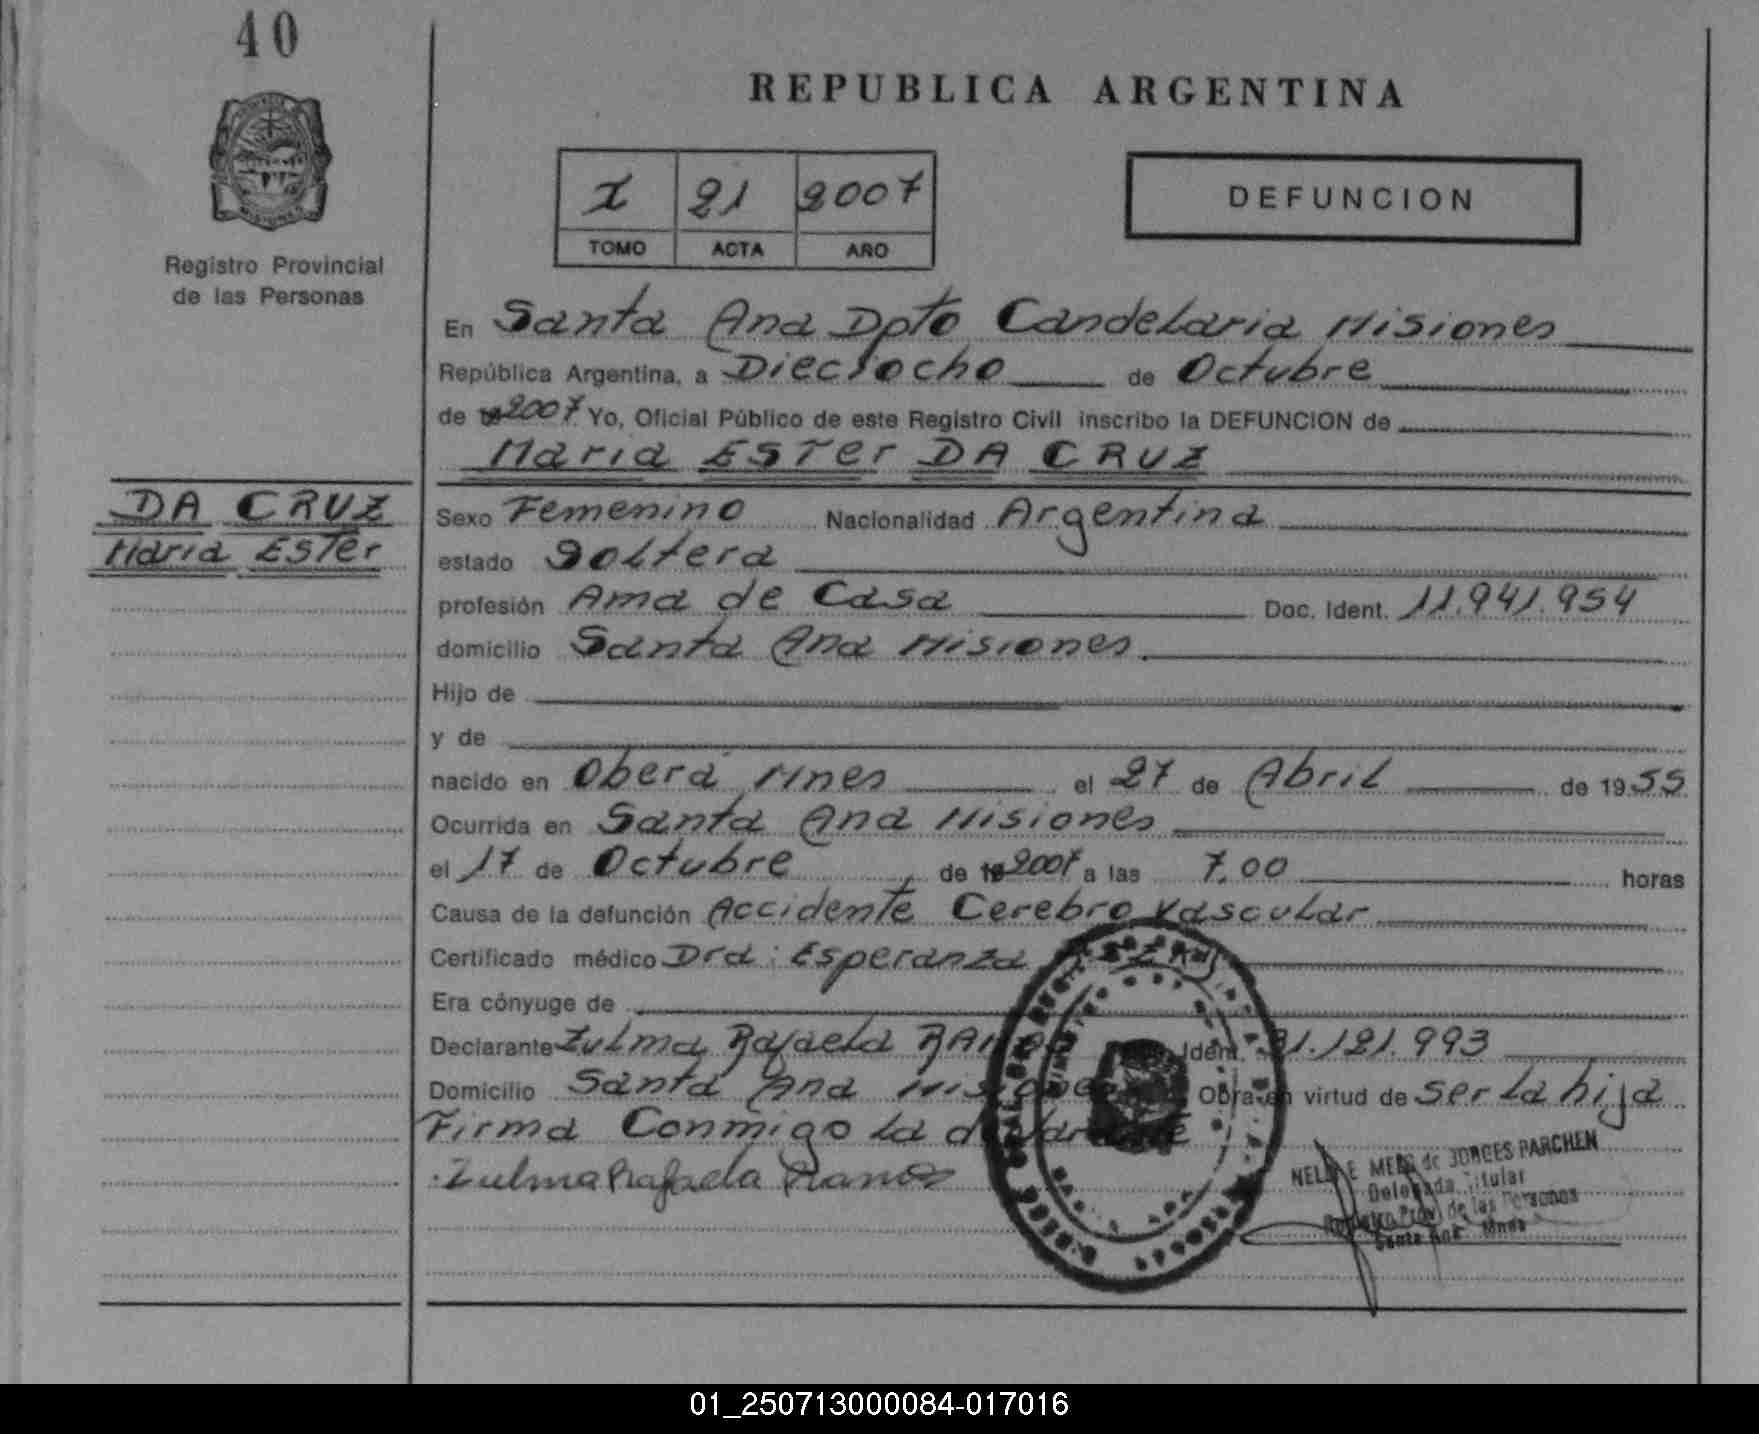 40
REPUBLICA ARGENTINA
I 21 2007
TOMO ACTA AÑO
DEFUNCION
Registro Provincial
de las Personas
En Santa Ana Dpto Candelaria Misiones
República Argentina, a Dieciocho de Octubre
de 2007 Yo, Oficial Público de este Registro Civil inscribo la DEFUNCION de
Maria ESTer DA CRUZ
DA CRUZ
Maria Ester
Sexo Femenino Nacionalidad Argentina
estado Soltera
profesión Ama de Casa Doc. Ident. 11.941.954
domicilio Santa Ana Misiones
Hijo de
y de
nacido en Oberá Mnes el 27 de Abril de 1955
Ocurrida en Santa Ana Misiones
el 17 de Octubre de 2007 a las 7,00 horas
Causa de la defunción Accidente Cerebro vascular
Certificado médico Dra: Esperanza
Era cónyuge de
Declarante Zulma Rafaela Ident. 31.121.993
Domicilio Santa Ana Misiones Obra en virtud de Ser la hija
Firma Conmigo la declarante
Zulma Rafaela Ramos
de JORGES PARCHEN
Delegada Titular
Registro Prov. de las Personas
Santa Ana Mnes
01_250713000084-017016